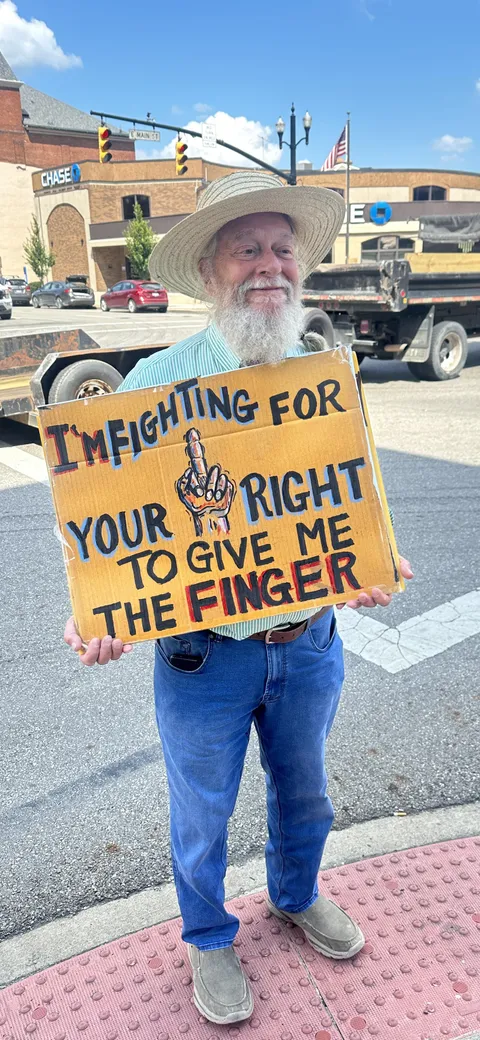 E MAIN ST
CHASE
E
I'M FIGHTING FOR
YOUR RIGHT
TO GIVE ME
THE FINGER